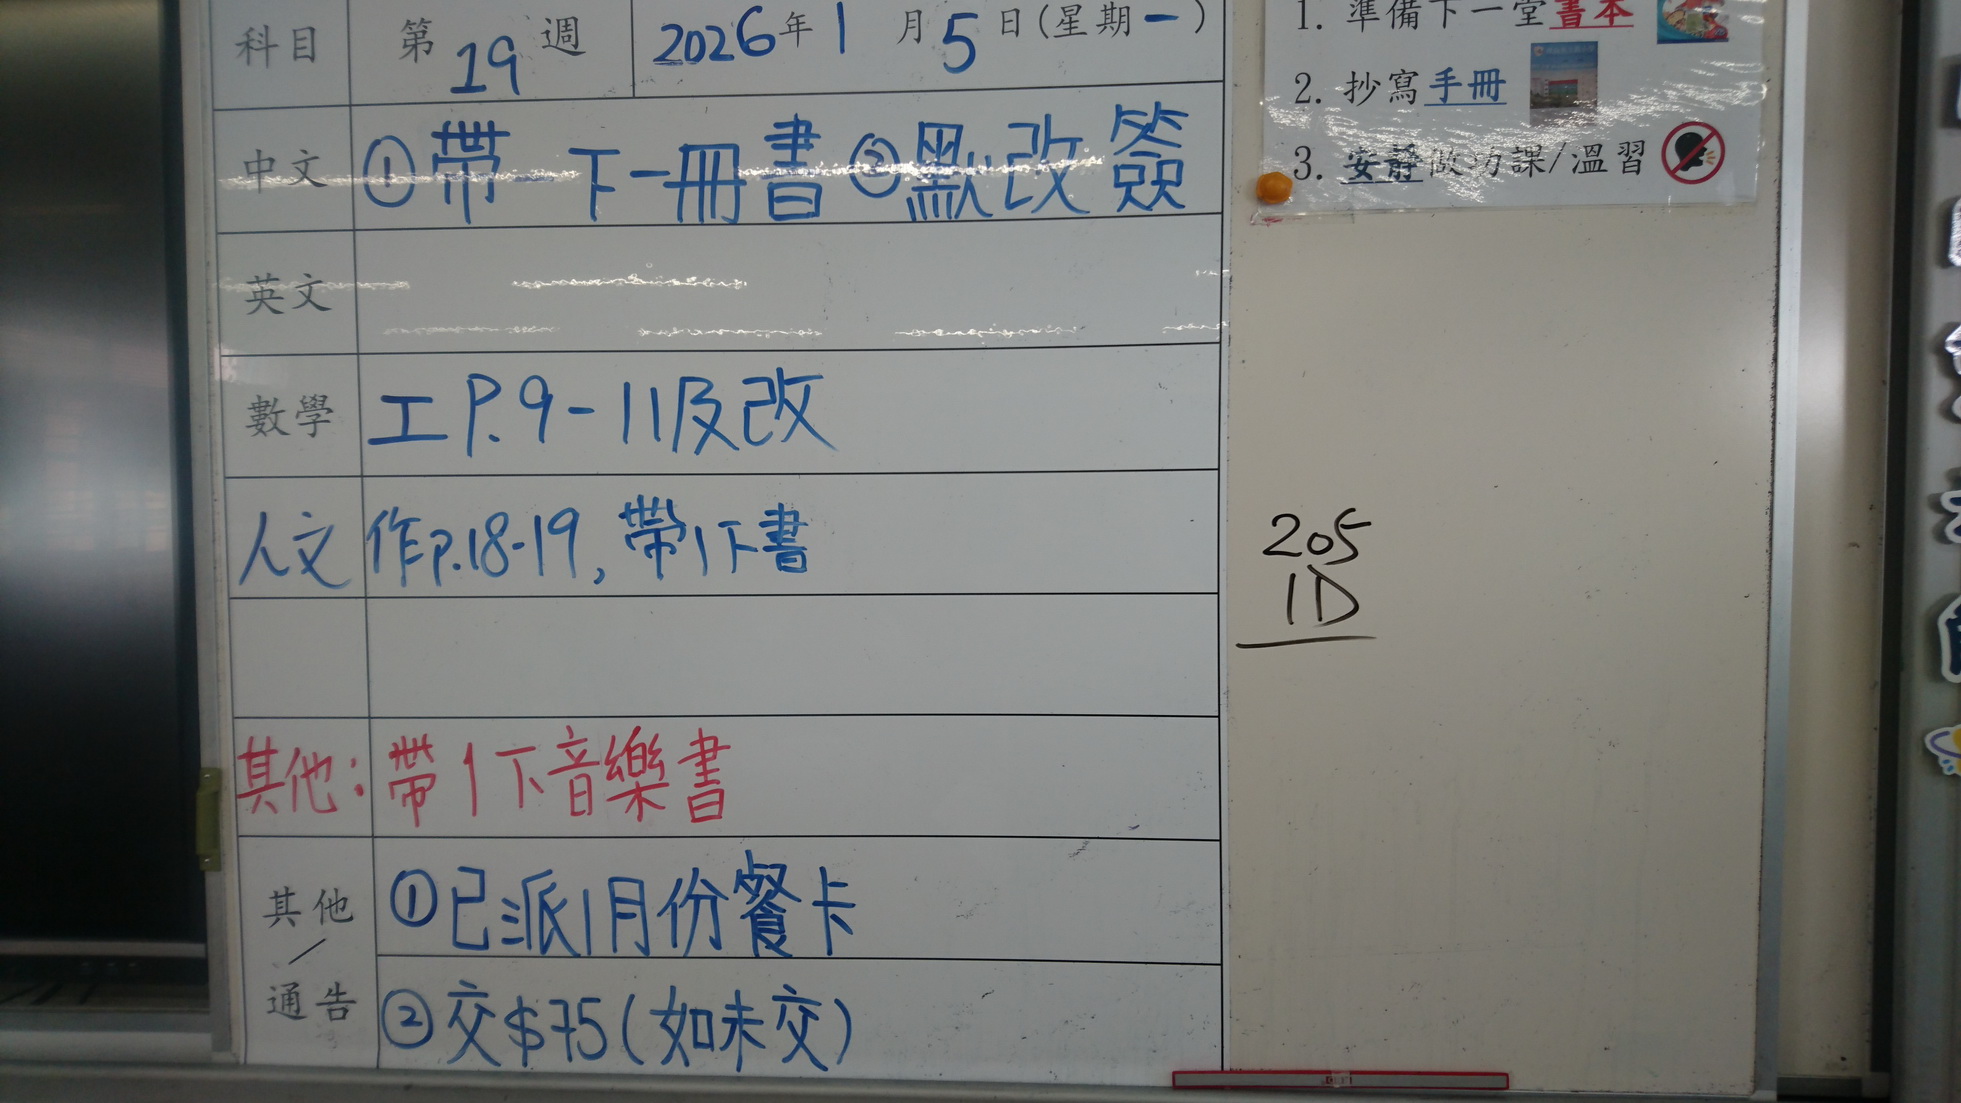 科目 第19週 2026年1月5日(星期一)
中文 ①帶一下一冊書 ②默改簽
英文
數學 工P.9-11及改
人文 作P.18-19, 帶1下書
其他: 帶1下音樂書
其他/通告 ①已派1月份餐卡
②交$75(如未交)
1. 準備下一堂書本
2. 抄寫手冊
3. 安靜做功課/溫習
205
1D